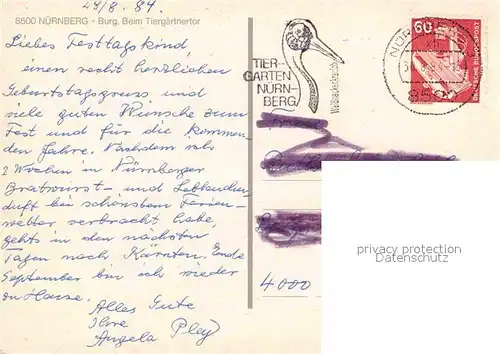 28/8. 84
8500 NÜRNBERG · Burg, Beim Tiergärtnertor
Liebes Festtagskind,
einen recht herzlichen
Geburtstagsgruss und
viele guten Wünsche zum
Fest und für die kommen-
den Jahre. Nachdem ich
2 Wochen in Nürnberger
Bratwurst- und Lebkuchen-
duft bei schönstem Ferien-
wetter verbracht habe,
gehts in den nächsten
Tagen nach Kärnten. Ende
September bin ich wieder
zu Hause.
Alles Gute
Ihre
Angela
TIER-
GARTEN
NÜRN-
BERG
NÜRNBERG
85
60
DEUTSCHE BUNDESPOST
4000
privacy protection
Datenschutz